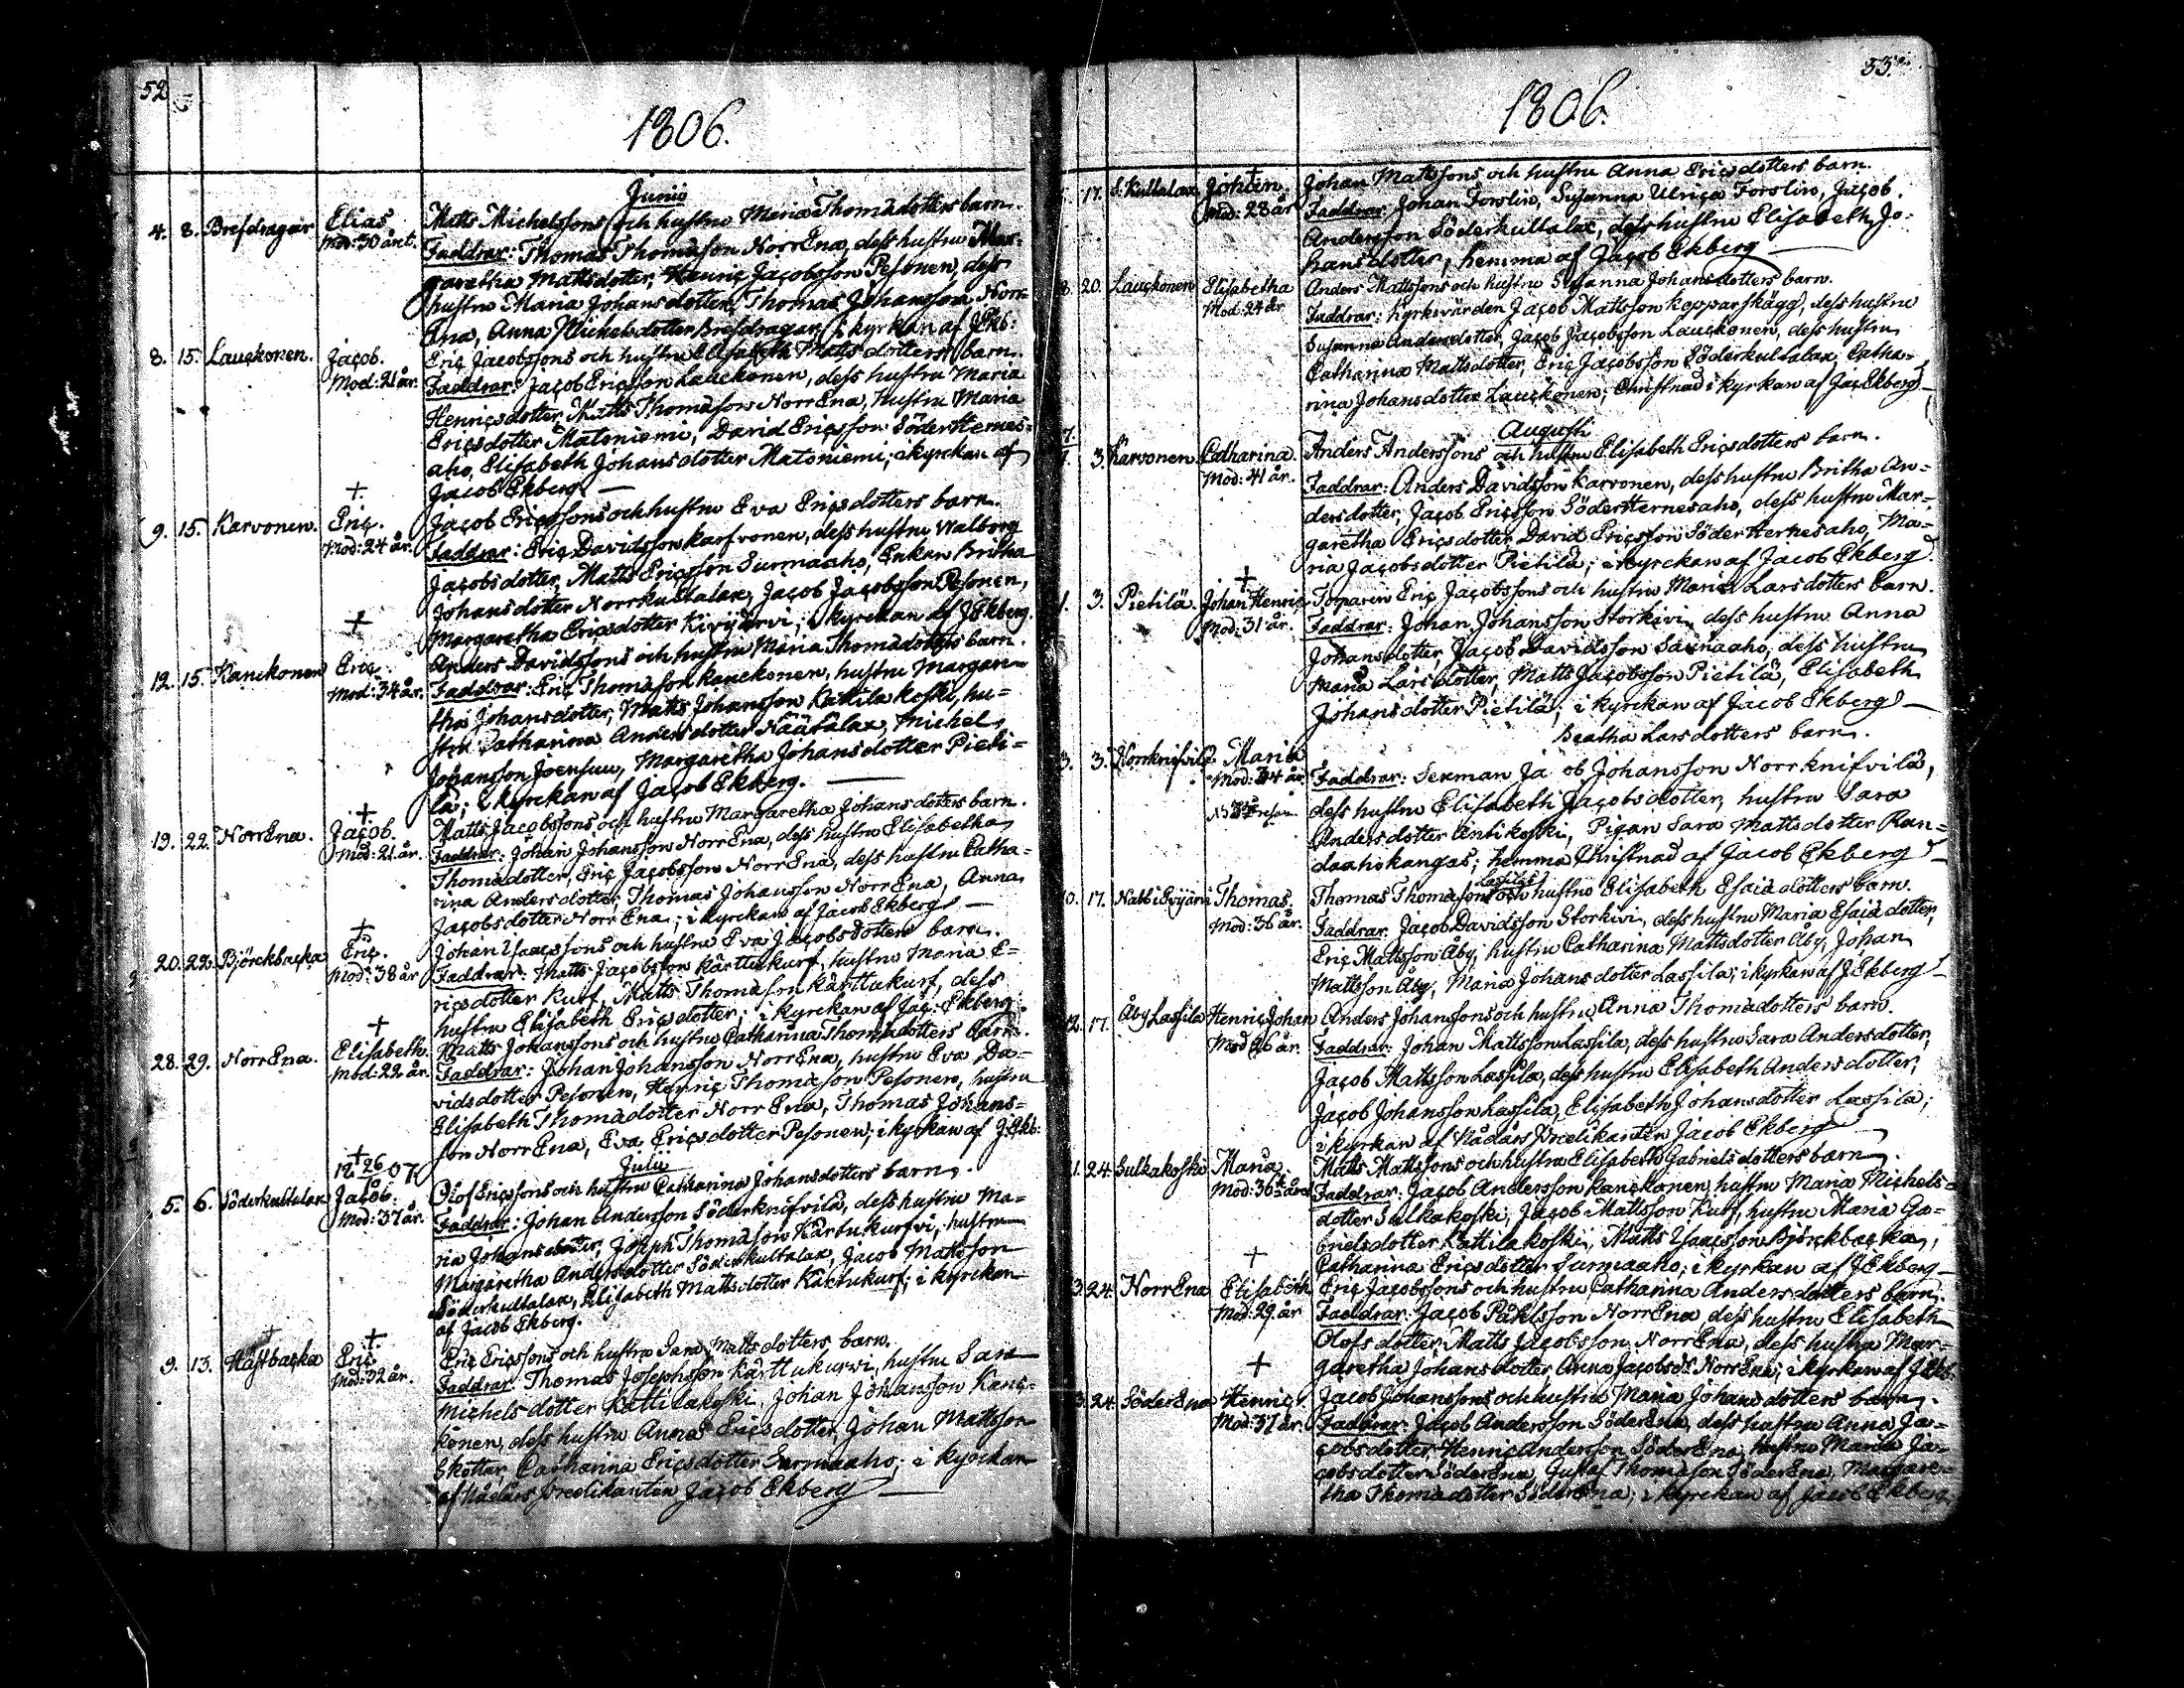 52
1806.
Junii
4. 8. Brefdragar Elias Matts Michelssons och hustru Maria Thomædotters barn.
Mod: 30 år Faddrar: Thomas Thomæson NorrEna, dess hustru Mar-
garetha Mattsdotter, Henric Jacobsson Pesonen, dess
hustru Maria Johansdotter, Thomas Johansson Norr
Ena, Anna Michelsdotter Brefdragar; i kyrkan af J Ekb:
8. 15. Lauckonen. Jacob. Eric Jacobssons och hustru Elisabeth Mattsdotters barn.
Mod: 21 år. Faddrar: Jacob Ericsson Lauckonen, dess hustru Maria
Henricsdotter, Matts Thomæson NorrEna, hustru Maria
Ericsdotter Matoniemi, David Ericsson SöderHernes-
aho, Elisabeth Johansdotter Matoniemi; i kyrckan af
Jacob Ekberg —
+
9. 15. Karvonen. Eric. Jacob Ericssons och hustru Eva Ericsdotters barn.
Mod: 24 år. Faddrar: Eric Davidsson Karfvonen, dess hustru Walborg
Jacobsdotter, Matts Ericsson Surmaaho, Enkan Britha
Johansdotter Norrkultalax, Jacob Jacobsson Pesonen,
Margaretha Ericsdotter Kivijärvi; i kyrckan af J Ekberg.
+
12. 15. Kanckonen Eric. Anders Davidssons och hustru Maria Thomædotters barn.
Mod: 34 år. Faddrar: Eric Thomæson Kanckonen, hustru Margare-
tha Johansdotter, Matts Johansson Kattilakoski, hu-
stru Catharina Andersdotter Näätälax, Michel
Johansson Joensuu, Margaretha Johansdotter Pieti-
lä; i kyrckan af Jacob Ekberg. —
+
19. 22. NorrEna. Jacob. Matts Jacobssons och hustru Margaretha Johansdotters barn.
Mod: 21 år. Faddrar: Johan Johansson NorrEna, dess hustru Elisabetha
Thomædotter, Eric Jacobsson NorrEna, dess hustru Catha-
rina Andersdotter, Thomas Johansson NorrEna, Anna
Jacobsdotter NorrEna; i kyrckan af Jacob Ekberg —
+
20. 22. Björckbacka Eric. Johan Isaacssons och hustru Eva Jacobsdotters barn.
Mod: 38 år Faddrar: Matts Jacobsson Kärttukurf, hustru Maria E-
ricsdotter Kurf, Matts Thomæson Kärttukurf, dess
hustru Elisabeth Ericsdotter; i kyrckan af Jac: Ekberg.
+
28. 29. NorrEna. Elisabeth. Matts Johanssons och hustru Catharina Thomædotters barn.
Mod: 22 år. Faddrar: Johan Johansson NorrEna, hustru Eva Da-
vidsdotter Pesonen, Henric Thomæson Pesonen, hustru
Elisabeth Thomædotter NorrEna, Thomas Johans-
son NorrEna, Eva Ericsdotter Pesonen; i kyrkan af J: Ekb:
+
12 26 07 Julii
5. 6. Söderkultalax Jacob. Olof Ericssons och hustru Catharina Johansdotters barn.
Mod: 37 år. Faddrar: Johan Andersson Söderknifvilä, dess hustru Ma-
ria Johansdotter, Joseph Thomæson Kärtukurfvi, hustru
Margaretha Andersdotter Söderkultalax, Jacob Mattsson
Söderkultalax, Elisabeth Mattsdotter Kärtukurf; i kyrckan
af Jacob Ekberg.
+
9. 13. Hästbacka Eric. Eric Ericssons och hustru Sara Mattsdotters barn.
Mod: 32 år. Faddrar: Thomas Josephsson Kärttukurvi, hustru Sara
Michelsdotter Kattilakoski, Johan Johansson Kanc-
konen, dess hustru Anna Ericsdotter, Johan Mattsson
Skottar Catharina Ericsdotter Surmaaho; i kyrckan
af Nådårs Predikanten Jacob Ekberg —
53.
1806.
17. S. Kultalax Johan. Johan Mattssons och hustru Anna Ericsdotters barn.
Mod: 28 år Faddrar: Johan Forslin, Susanna Ulrica Forslin, Jacob
Andersson Söderkultalax, dess hustru Elisabeth Jo-
hansdotter; hemma af Jacob Ekberg —
8. 20. Lauckonen Elisabetha Anders Mattssons och hustru Susanna Johansdotters barn.
Mod: 24 år Faddrar: Kyrkovärden Jacob Mattsson Kopparskägg, dess hustru
Susanna Andersdotter, Jacob Jacobsson Lauckonen, dess hustru
Catharina Mattsdotter, Eric Jacobsson Söderkultalax, Catha-
rina Johansdotter Lauckonen; Christnad i kyrkan af Jac Ekberg —
Augusti
1. 3. Karvonen Catharina. Anders Anderssons och hustru Elisabeth Ericsdotters barn.
Mod: 41 år. Faddrar: Anders Davidsson Karvonen, dess hustru Britha An-
dersdotter, Jacob Ericsson SöderHernesaho, dess hustru Mar-
garetha Ericsdotter David Ericsson SöderHernesaho, Ma-
ria Jacobsdotter Pietilä; i kyrckan af Jacob Ekberg.
+
1. 3. Pietilä Johan Henric Torparen Eric Jacobssons och hustru Maria Larsdotters barn.
Mod: 31 år. Faddrar: Johan Johansson Storkivi, dess hustru Anna
Johansdotter, Jacob Davidsson Saunaaho, dess hustru
Maria Larsdotter, Matts Jacobsson Pietilä, Elisabeth
Johansdotter Pietilä; i kyrckan af Jacob Ekberg —
Beatha Larsdotters barn.
3. 3. Norrknifvilä Maria
Mod: 34 år. Faddrar: Sexman Ja ob Johansson Norrknifvilä,
dess hustru Elisabeth Jacobsdotter, hustru Sara
Andersdotter Antikoski, Pigan Sara Mattsdotter Ran-
daahokangas; hemma Christnad af Jacob Ekberg —
Lassilas
10. 17. Thomas. Thomas Thomæsons och hustru Elisabeth Esaiædotters barn.
Mod: 36 år. Faddrar: Jacob Davidsson Storkivi, dess hustru Maria Esaiædotter,
Eric Mattsson Åby, hustru Catharina Mattsdotter Åby, Johan
Mattsson Åby, Maria Johansdotter Lassila; i kyrkan af J Ekberg —
12. 17. Åby Lassila Henric Johan Anders Johanssons och hustru Anna Thomædotters barn.
Mod 26 år. Faddrar: Johan Mattsson Lassila, dess hustru Sara Andersdotter,
Jacob Mattsson Lassila, dess hustru Elisabeth Andersdotter,
Jacob Johansson Lassila, Elisabeth Johansdotter Lassila;
i kyrkan af Nådårs Predikanten Jacob Ekberg —
21. 24. Sulkakoski Maria Matts Mattssons och hustru Elisabeth Gabrielsdotters barn.
Mod: 36 år Faddrar: Jacob Andersson Kanckonen, hustru Maria Michels-
dotter Sulkakoski, Jacob Mattsson Kurf, hustru Maria Ga-
brielsdotter Kattilakoski, Matts Isaacsson Björckbacka,
Catharina Ericsdotter Surmaaho; i kyrkan af J Ekberg —
+
3. 24. NorrEna Elisabeth Eric Jacobssons och hustru Catharina Andersdotters barn.
Mod: 29 år Faddrar: Jacob Påhlsson NorrEna, dess hustru Elisabeth
Olofsdotter, Matts Jacobsson NorrEna, dess hustru Mar-
garetha Johansdotter, Anna Jacobsdr NorrEna; i kyrkan af J Ekb.
+
3. 24. SöderEna Henric. Jacob Johanssons och hustru Maria Johansdotters barn.
Mod: 37 år. Faddrar: Jacob Andersson SöderEna, dess hustru Anna Ja-
cobsdotter, Henric Andersson SöderEna, hustru Maria Ja-
cobsdotter SöderEna, Gustaf Thomæson SöderEna, Margare-
tha Thomædotter SöderEna; i kyrckan af Jacob Ekberg